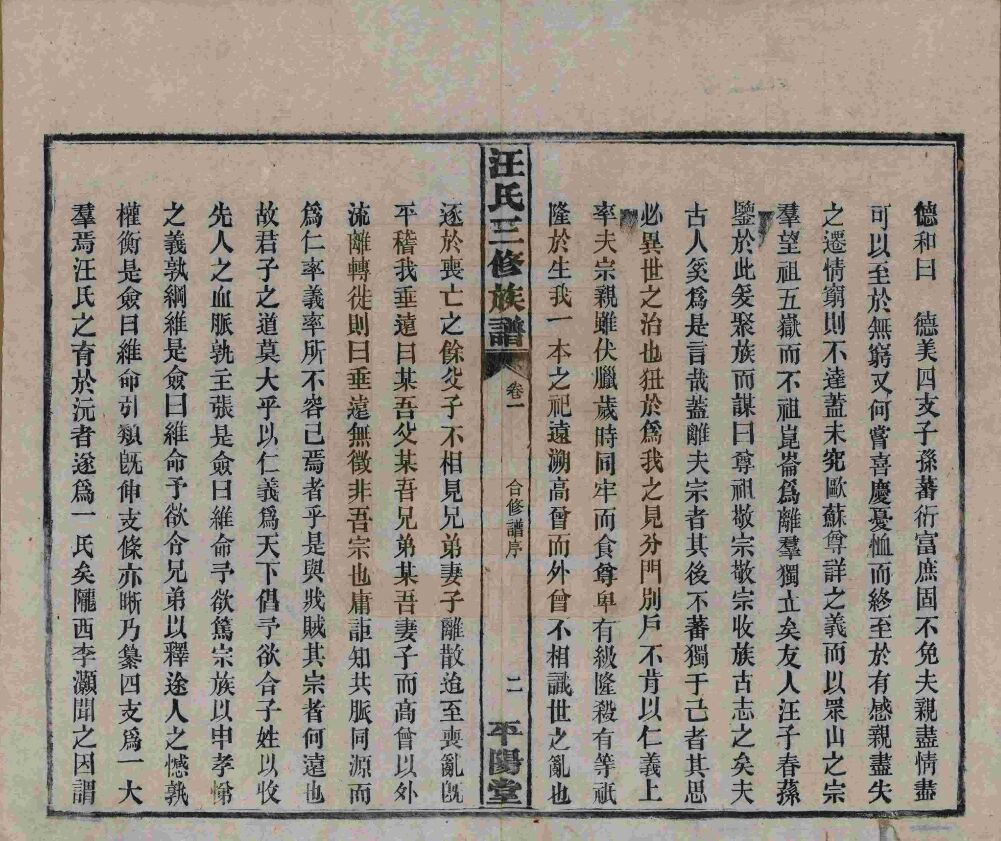 德和曰　德美四支子孫蕃衍富庶固不免夫親盡情盡
可以至於無窮又何嘗喜慶憂恤而終至於有感親盡失
之遷情窮則不達蓋未究歐蘇尊詳之義而以眾山之宗
羣望祖五嶽而不祖崑崙為離羣獨立矣友人汪子春蓀
鑒於此爰聚族而謀曰尊祖敬宗敬宗收族古志之矣夫
古人奚為是言哉蓋離夫宗者其後不蕃獨于己者其思
必異世之治也狃於為我之見分門別戶不肯以仁義上
率夫宗親雖伏臘歲時同牢而食尊卑有級隆殺有等祇
隆於生我一本之祀遠溯高曾而外曾不相識世之亂也
汪氏三修族譜　卷一　合修譜序　二　平陽堂
逐於喪亡之餘父子不相見兄弟妻子離散迨至喪亂旣
平稽我垂遠曰某吾父某吾兄弟某吾妻子而高曾以外
流離轉徙則曰垂遠無徵非吾宗也庸詎知共脈同源而
為仁率義率所不容已焉者乎是與戕賊其宗者何遠也
故君子之道莫大乎以仁義為天下倡予欲合子姓以收
先人之血脈孰主張是僉曰維命予欲篤宗族以申孝悌
之義孰綱維是僉曰維命予欲令兄弟以釋途人之憾孰
權衡是僉曰維命引類旣伸支條亦晰乃纂四支為一大
羣焉汪氏之有於沅者遂為一氏矣隴西李灝聞之因謂